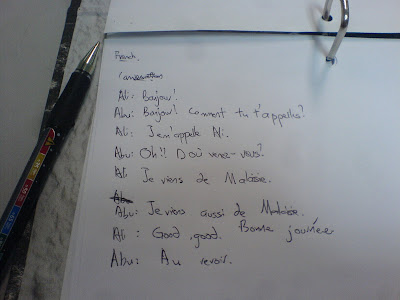 French.
Conversation
Ali : Bonjour!
Abu : Bonjour! Comment tu t'appelles?
Ali : Je m'appelle Ali.
Abu : Oh!! D'où venez-vous?
Ali Je viens de Malaisie.
Abu
Abu : Je viens aussi de Malaisie.
Ali : Good, good. Bonne journée
Abu : Au revoir.